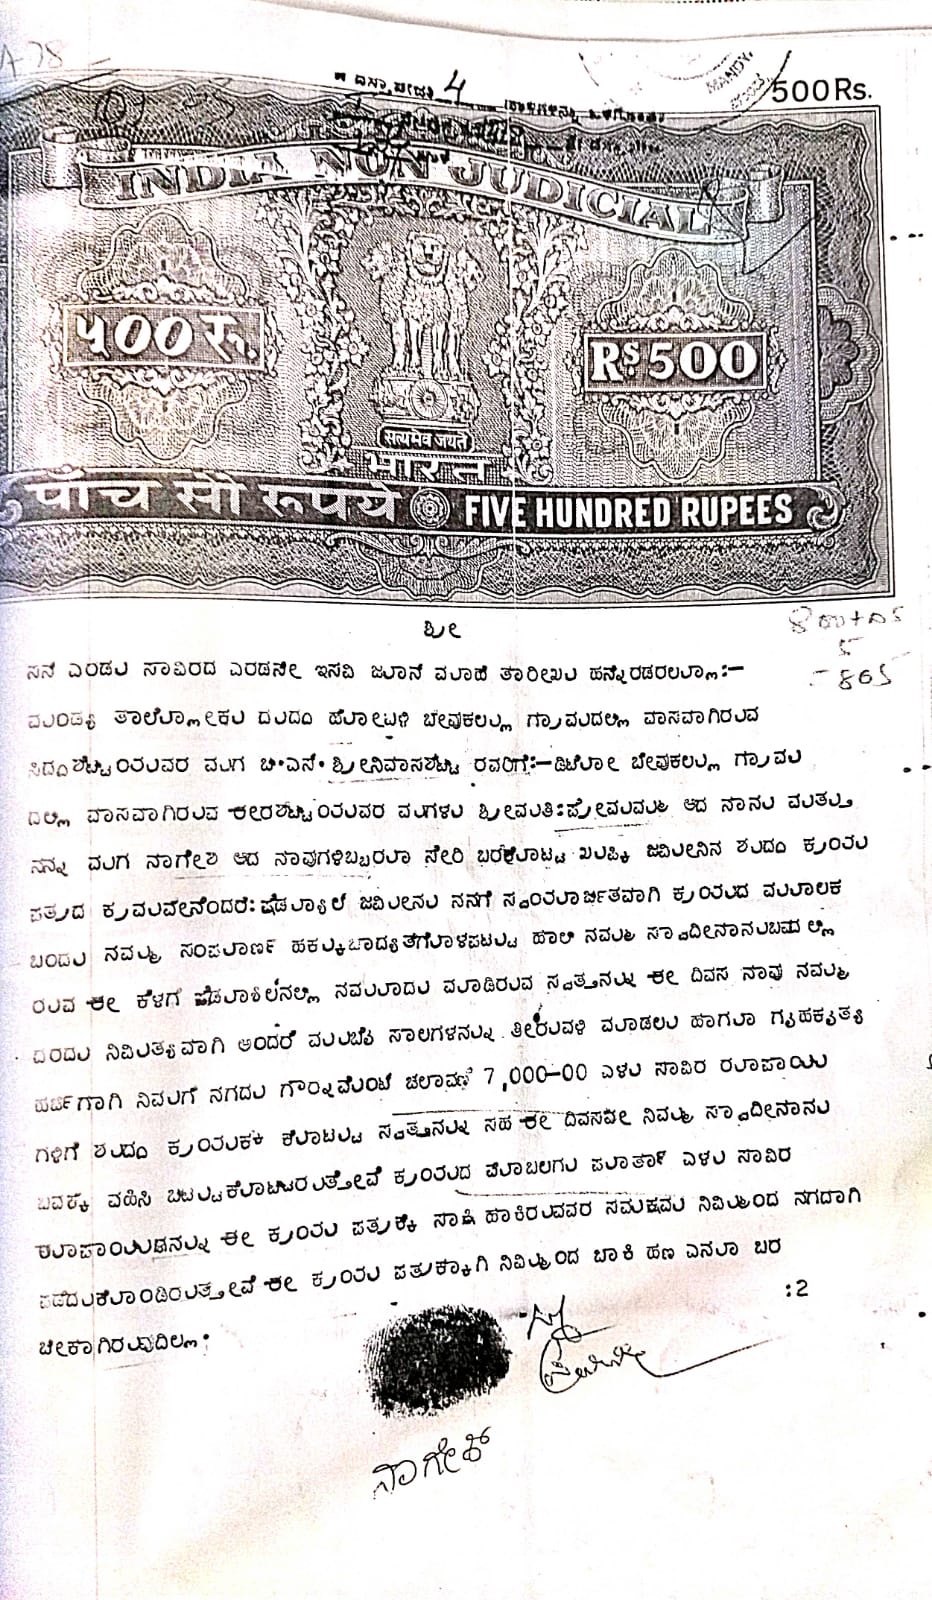 A-78
ದಸ್ತಾವೇಜು 4
MANDY
500 Rs.
INDIA NON JUDICIAL
५00 रु.
Rs 500
सत्यमेव जयते
भारत
पाँच सौ रूपये FIVE HUNDRED RUPEES
ಶ್ರೀ
5
-865
ಸನೆ ಎರಡು ಸಾವಿರದ ಎರಡನೇ ಇಸವಿ ಜೂನ್ ಮಾಹೆ ತಾರೀಖು ಹನ್ನೆರಡರಲ್ಲೂ:-
ಮಂಡ್ಯ ತಾಲ್ಲೂಕು ದುದ್ದ ಹೋಬಳಿ ಬೇವುಕಲ್ಲು ಗ್ರಾಮದಲ್ಲಿ ವಾಸವಾಗಿರುವ
ಸಿದ್ದಶೆಟ್ಟಿಯವರ ಮಗ ಬಿ.ಎಸ್. ಶ್ರೀನಿವಾಸಶೆಟ್ಟಿ ರವರಿಗೆ:- ಡಿಟೋ ಬೇವುಕಲ್ಲು ಗ್ರಾಮ
ದಲ್ಲಿ ವಾಸವಾಗಿರುವ ಈರಶೆಟ್ಟಿಯವರ ಮಗಳು ಶ್ರೀಮತಿ:ಪ್ರೇಮಮ್ಮ ಆದ ನಾನು ಮತ್ತು
ನನ್ನ ಮಗ ನಾಗೇಶ ಆದ ನಾವುಗಳಿಬ್ಬರೂ ಸೇರಿ ಬರಕೊಟ್ಟ ಖುಷ್ಕಿ ಜಮೀನಿನ ಶುದ್ಧ ಕ್ರಯ
ಪತ್ರದ ಕ್ರಮವೇನೆಂದರೆ: ಷೆಡ್ಯೂಲ್ ಜಮೀನು ನನಗೆ ಸ್ವಯಾರ್ಜಿತವಾಗಿ ಕ್ರಯದ ಮೂಲಕ
ಬಂದು ನಮ್ಮ ಸಂಪೂರ್ಣ ಹಕ್ಕುಬಾದ್ಯತೆಗೊಳಪಟ್ಟು ಹಾಲಿ ನಮ್ಮ ಸ್ವಾದೀನಾನುಬವದಲ್ಲಿ
ರುವ ಈ ಕೆಳಗೆ ಷೆಡ್ಯೂಲಿನಲ್ಲಿ ನಮೂದು ಮಾಡಿರುವ ಸ್ವತ್ತನ್ನು ಈ ದಿವಸ ನಾವು ನಮ್ಮ
ದರ್ದು ನಿಮಿತ್ಯವಾಗಿ ಅಂದರೆ ಮುಂಚೆ ಸಾಲಗಳನ್ನು ತೀರುವಳಿ ಮಾಡಲು ಹಾಗೂ ಗೃಹಕೃತ್ಯ
ಖರ್ಚಿಗಾಗಿ ನಿಮಗೆ ನಗದು ಗೌರ್ನ್ಮೆಂಟ್ ಚಲಾವಣೆ 7,000-00 ಏಳು ಸಾವಿರ ರೂಪಾಯಿ
ಗಳಿಗೆ ಶುದ್ಧ ಕ್ರಯಕ್ಕೆ ಕೊಟ್ಟು ಸ್ವತ್ತನ್ನು ಸಹ ಈ ದಿವಸವೇ ನಿಮ್ಮ ಸ್ವಾದೀನಾನು
ಬವಕ್ಕೆ ವಹಿಸಿ ಬಿಟ್ಟುಕೊಟ್ಟಿರುತ್ತೇವೆ ಕ್ರಯದ ಮೊಬಲಗು ಪೂರ್ತಾ ಏಳು ಸಾವಿರ
ರೂಪಾಯಿಗಳನ್ನು ಈ ಕ್ರಯ ಪತ್ರಕ್ಕೆ ಸಾಕ್ಷಿ ಹಾಕಿರುವವರ ಸಮಕ್ಷಮ ನಿಮ್ಮಿಂದ ನಗದಾಗಿ
ಪಡೆದುಕೊಂಡಿರುತ್ತೇವೆ ಈ ಕ್ರಯ ಪತ್ರಕ್ಕಾಗಿ ನಿಮ್ಮಿಂದ ಬಾಕಿ ಹಣ ಏನೂ ಬರ
ಬೇಕಾಗಿರುವುದಿಲ್ಲ.
:2
ನಾಗೇಶ್